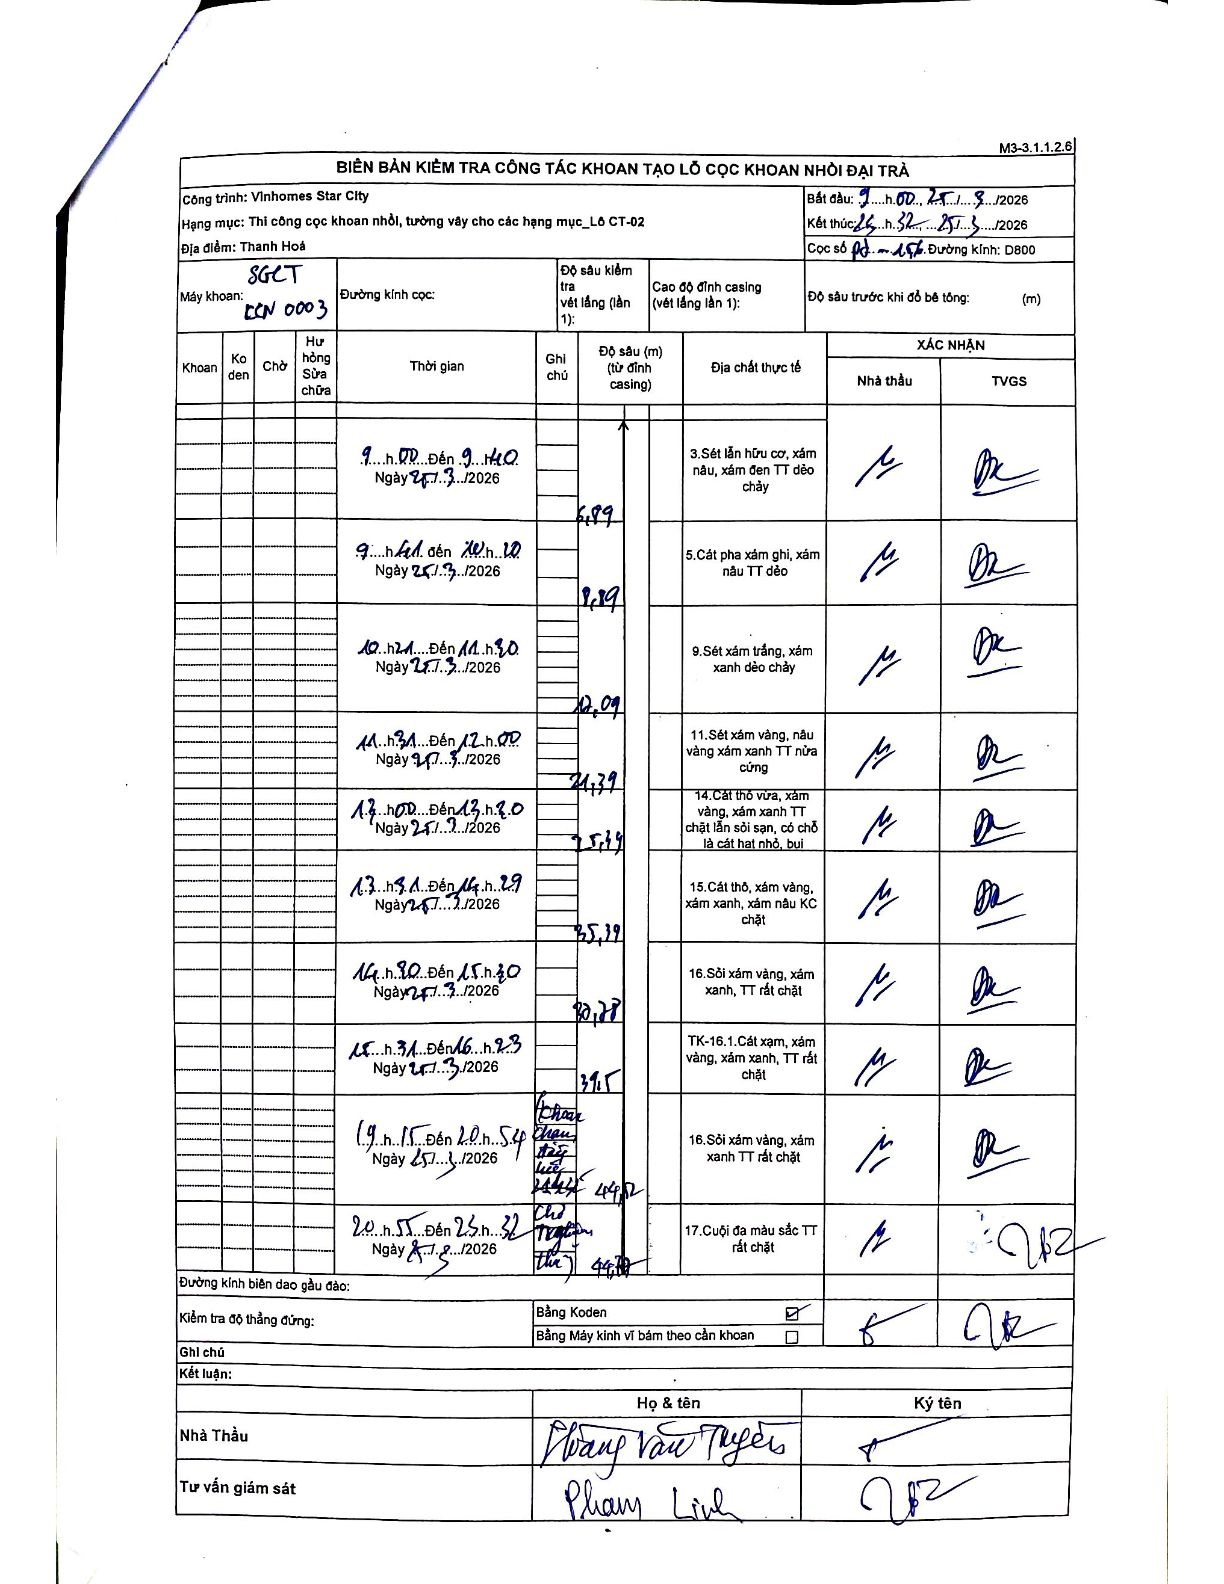 M3-3.1.1.2.6
BIÊN BẢN KIỂM TRA CÔNG TÁC KHOAN TẠO LỖ CỌC KHOAN NHỒI ĐẠI TRÀ
Công trình: Vinhomes Star City
Bắt đầu: 9....h.00., 25./...3.../2026
Hạng mục: Thi công cọc khoan nhồi, tường vây cho các hạng mục_Lô CT-02
Kết thúc: 23...h.32., ...25/.3..../2026
Địa điểm: Thanh Hoá
Cọc số Pd - 156. Đường kính: D800
Máy khoan: SGCT
CCN 0003
Đường kính cọc:
Độ sâu kiểm tra
vét lắng (lần 1):
Cao độ đỉnh casing
(vét lắng lần 1):
Độ sâu trước khi đổ bê tông: (m)
Khoan
Ko đen
Chờ
Hư hỏng Sửa chữa
Thời gian
Ghi chú
Độ sâu (m)
(từ đỉnh casing)
Địa chất thực tế
XÁC NHẬN
Nhà thầu
TVGS
9....h.00...Đến 9...h40
Ngày 25./..3.../2026
6,89
3.Sét lẫn hữu cơ, xám
nâu, xám đen TT dẻo
chảy
9....h41. đến 10.h..20
Ngày 25./..3.../2026
8,89
5.Cát pha xám ghi, xám
nâu TT dẻo
10..h21....Đến 11..h.30
Ngày 25./..3.../2026
12,09
9.Sét xám trắng, xám
xanh dẻo chảy
11...h.31...Đến 12.h.00
Ngày 25./...3.../2026
21,39
11.Sét xám vàng, nâu
vàng xám xanh TT nửa
cứng
13..h00...Đến 13.h.30
Ngày 25./..3.../2026
25,39
14.Cát thô vừa, xám
vàng, xám xanh TT
chặt lẫn sỏi sạn, có chỗ
là cát hạt nhỏ, bụi
13...h.31...Đến 14.h..29
Ngày 25./...3./2026
35,39
15.Cát thô, xám vàng,
xám xanh, xám nâu KC
chặt
14..h.30...Đến 15.h.30
Ngày 25./..3.../2026
16.Sỏi xám vàng, xám
xanh, TT rất chặt
15...h.31...Đến 16...h.23
Ngày 25./..3./2026
39,5
TK-16.1.Cát xạm, xám
vàng, xám xanh, TT rất
chặt
19..h..15...Đến 20.h..54
Ngày 25./...3.../2026
Khoan
44,12
16.Sỏi xám vàng, xám
xanh TT rất chặt
20...h..55...Đến 23.h...32
Ngày 25./..3.../2026
Chờ
nghiệm
thu
17.Cuội đa màu sắc TT
rất chặt
Đường kính biên dao gầu đào:
Kiểm tra độ thẳng đứng:
Bằng Koden ☑
Bằng Máy kinh vĩ bám theo cần khoan ☐
Ghi chú
Kết luận:
Họ & tên
Ký tên
Nhà Thầu
Hoàng Văn Tuyên
Tư vấn giám sát
Phạm Linh